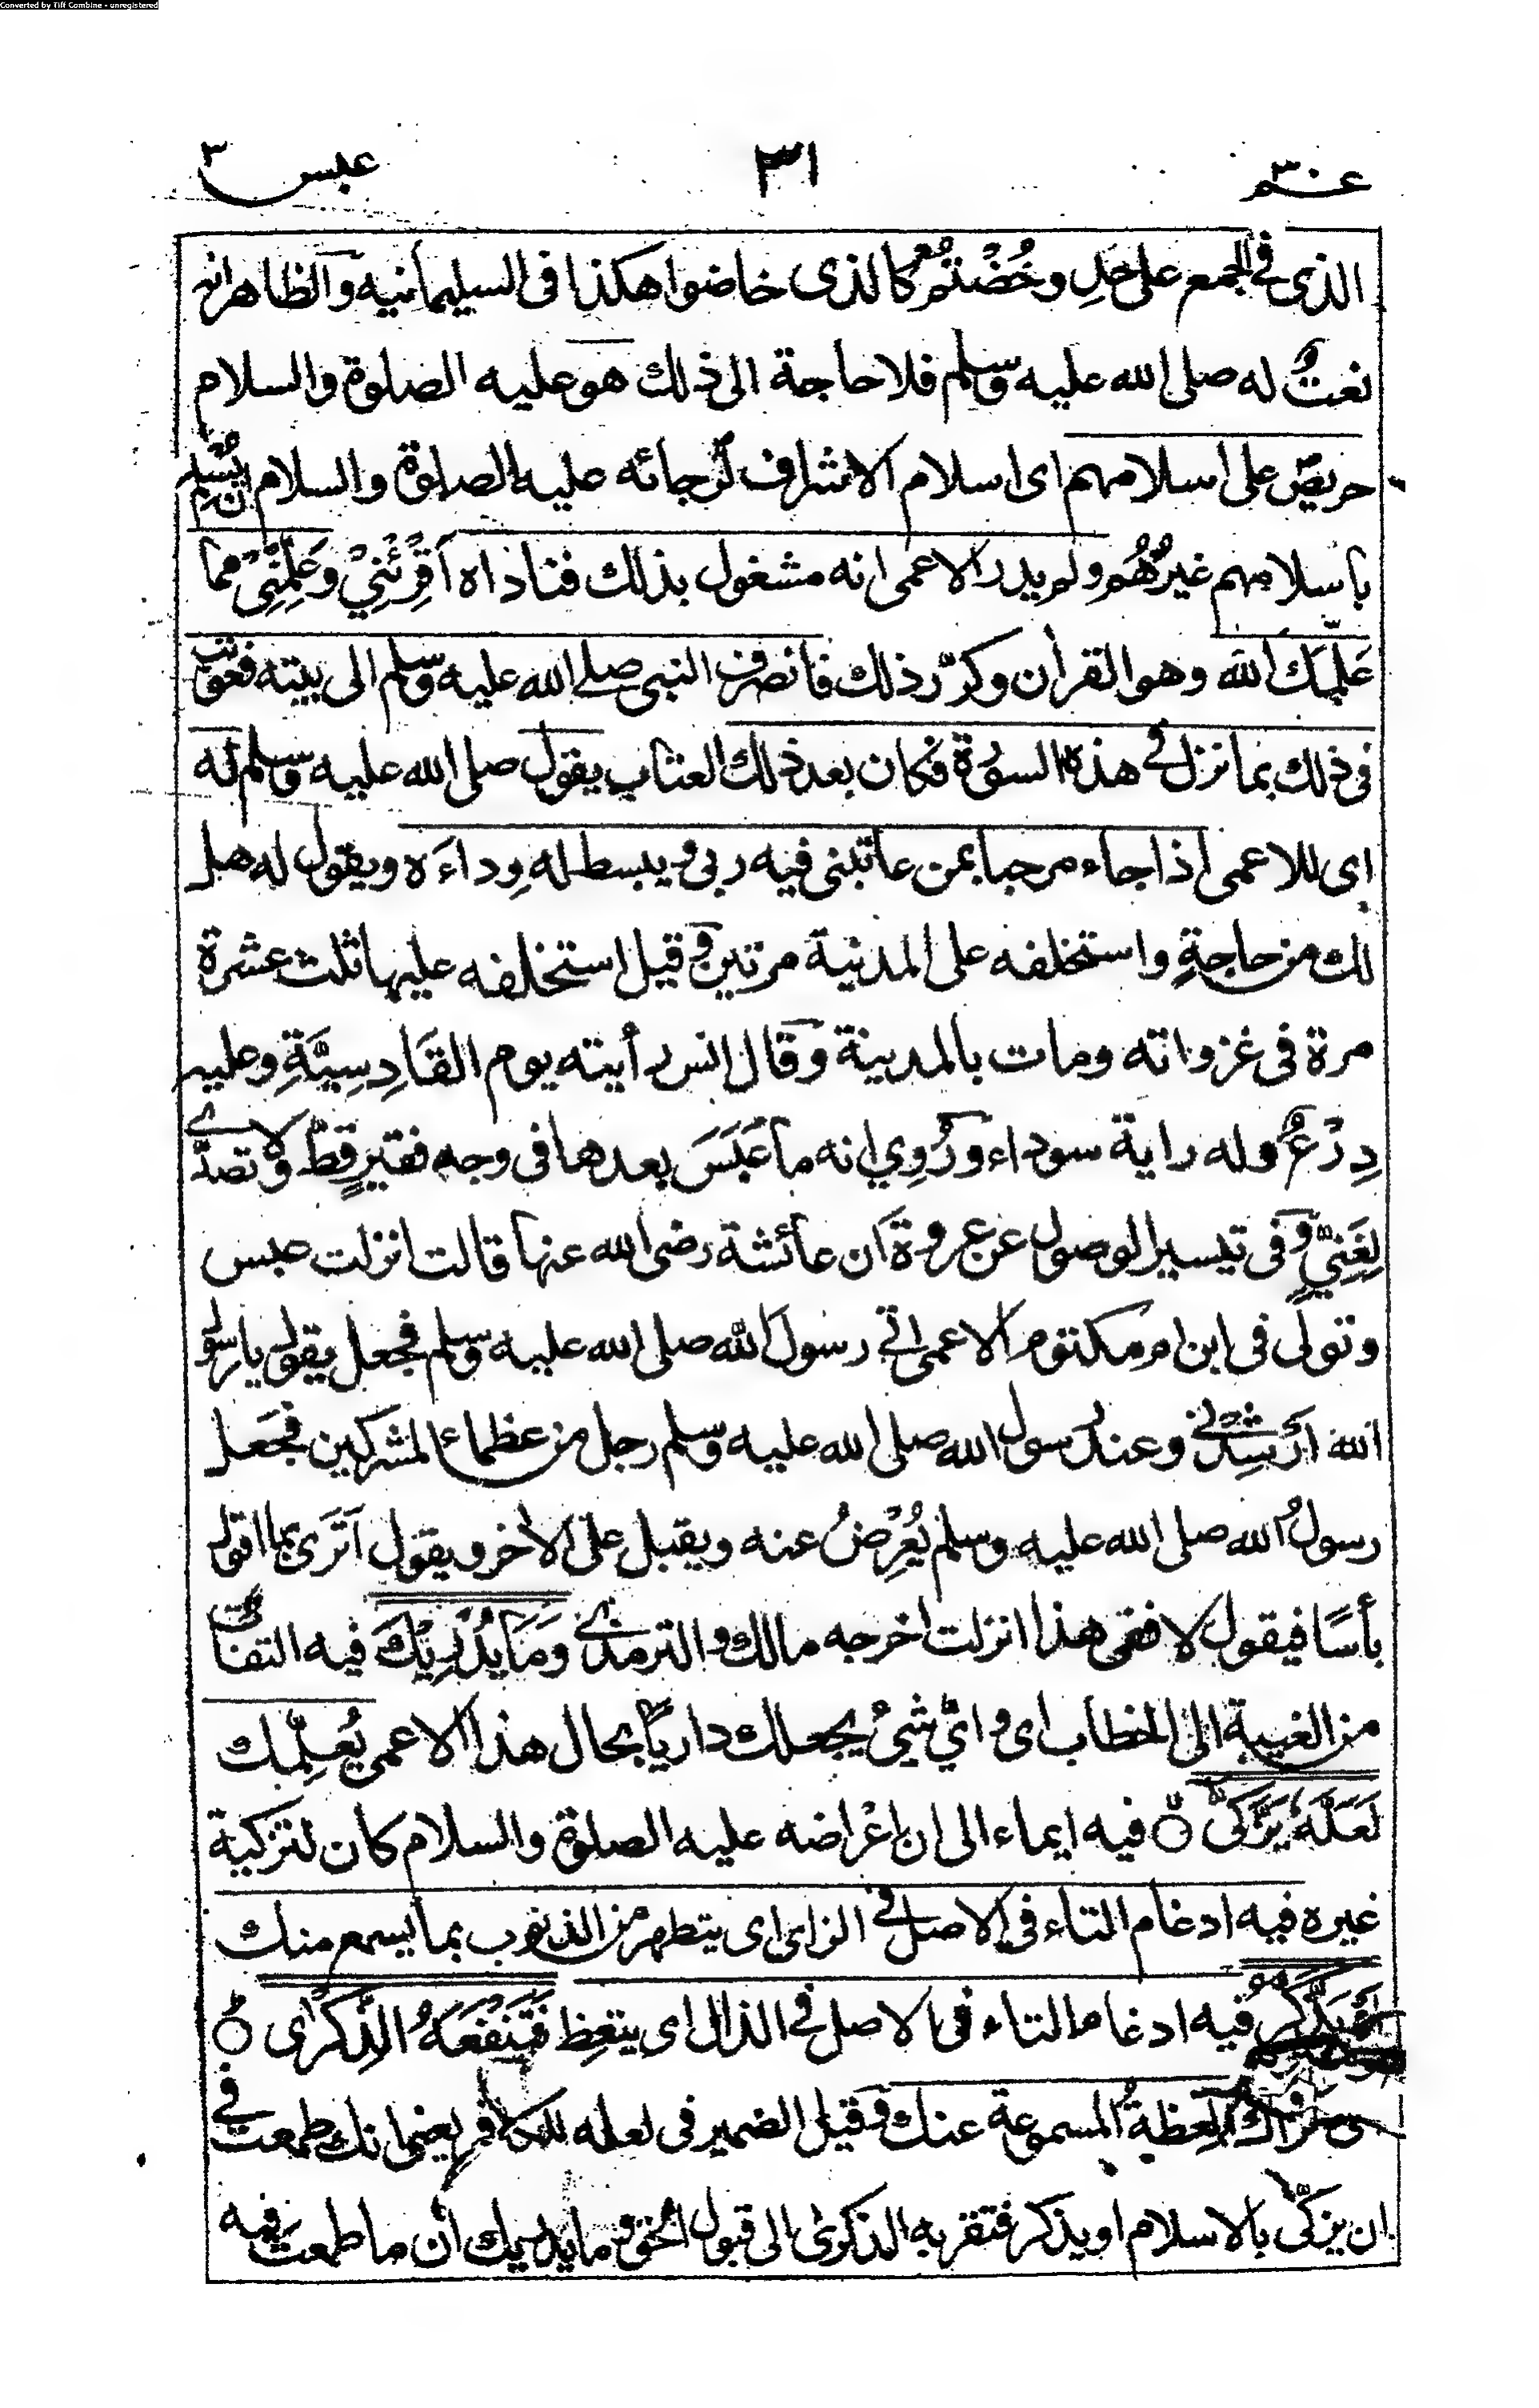 Converted by Tiff Combine - unregistered
عم ٣٠
٣١
عبس ٣
الذى فى الجمع على حدِ وخُضْتُمْ كالذى خاضوا هكذا فى السليمانيه والظاهر انه
نعتٌ له صلى الله عليه وسلم فلا حاجة الى ذلك هو عليه الصلوة والسلام
حريصٌ على اسلامهم اى اسلام الاشراف لرجائه عليه الصلوة والسلام ان يُسْلِمَ
باسلامهم غيرُهُم ولم يدر الاعمى انه مشغول بذلك فناداه اَقْرِئْنِيْ وعَلِّمْنِيْ مما
عَلَّمَكَ اللّٰه وهو القرآن وكرّر ذلك فانصرف النبى صلى الله عليه وسلم الى بيته فعوتب
فى ذلك بما نزل فى هذه السورة فكان بعد ذلك العتاب يقول صلى الله عليه وسلم له
اى للاعمى اذا جاء مرحبا بمن عاتبنى فيه ربى ويبسط له رِداءَه ويقول له هل
لك من حاجةٍ واستخلفه على المدينة مرتين وقيل استخلفه عليها ثلث عشرة
مرة فى غزواته ومات بالمدينة وقال انس رأيته يوم القَادِسِيَّةِ وعليه
دِرْعٌ وله راية سوداء ورُوِي انه ما عَبَسَ بعدها فى وجه فقيرٍ قطّ ولا تصدّى
لِغَنِيٍّ وفى تيسير الوصول عن عروة ان عائشة رضى الله عنها قالت انزلت عبس
وتولى فى ابن ام مكتوم الاعمى اتى رسول اللّٰه صلى الله عليه وسلم فجعل يقول يا رسول
الله اَرْشِدْنِي وعند رسول الله صلى الله عليه وسلم رجل من عظماء المشركين فجَعل
رسولُ الله صلى الله عليه وسلم يُعْرِضُ عنه ويقبل على الاخر ويقول اَتَرَى بما اقول
بأسًا فيقول لا ففى هذا انزلت اخرجه مالك والترمذى وَمَا يُدْرِيْكَ فيه التفات
من الغيبة الى الخطاب اى واىّ شىءٍ يجعلك داريًا بحال هذا الاعمى يُعلِمُك
لَعَلَّهٗ يَزَّكّٰى فيه ايماء الى ان اِعْراضه عليه الصلوة والسلام كان لتزكية
غيره فيه ادغام التاء فى الاصل فى الزاى اى يتطهر من الذنوب بما يسمع منك
اَوْ يَذَّكَّرُ فيه ادغام التاء فى الاصل فى الذال اى يتعظ فَتَنْفَعَهُ الذِّكْرٰى
العِظةُ المسموعة عنك وقيل الضمير فى لعله للكافر يعنى انك طمعت فى
ان يزكّى بالاسلام او يذكر فتقربه الذكرى الى قبول الحق وما يدريك ان ما طمعت فيه